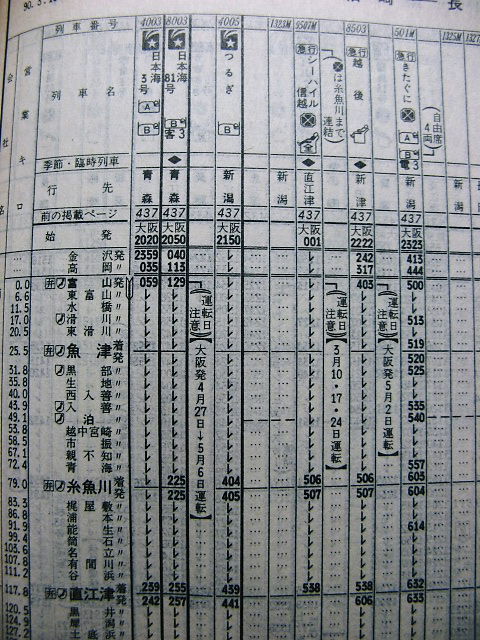 列車番号 4003 8003 4005 1323M 9507M 8503 501M 1325M
列車名
日本海3号
日本海81号
つるぎ
急行 シーハイル信越
は糸魚川まで連結
急行 越後
急行 きたぐに
自由席4両
A B
B 客3
B
A B 電3
季節・臨時列車 ◆ ◆
行先 青森 青森 新潟 新潟 直江津 新津 新潟 新潟
前の掲載ページ 437 437 437 437 437 437
始発 大阪2020 大阪2050 大阪2150 大阪001 大阪2222 大阪2323
金沢発 2359 040 242 413
高岡〃 035 113 317 444
0.0 富山〃 059 129 403 500
6.6 東富山〃
11.5 水橋〃
17.0 滑川〃 513
20.5 東滑川〃
25.5 魚津着 519
発 520
31.8 黒部〃 525
35.8 生地〃
40.0 西入善〃
43.9 入善〃 535
49.1 泊〃 540
53.8 越中宮崎〃
58.5 市振〃
67.1 親不知〃
72.4 青海〃 557
79.0 糸魚川着 225 404 506 506 603
発 225 405 507 507 604
83.3 梶屋敷〃
86.8 浦本〃
91.9 能生〃 614
99.4 筒石〃
103.6 名立〃
107.8 有間川〃
111.2 谷浜〃
117.8 直江津着 239 255 439 538 538 632
発 242 257 441 606 633
120.5 黒井〃
124.9 犀潟〃
127.2 土底浜〃
運転日注意
大阪発4月27日→5月6日運転
運転日注意
3月10・17・24日運転
運転日注意
大阪発5月2日運転